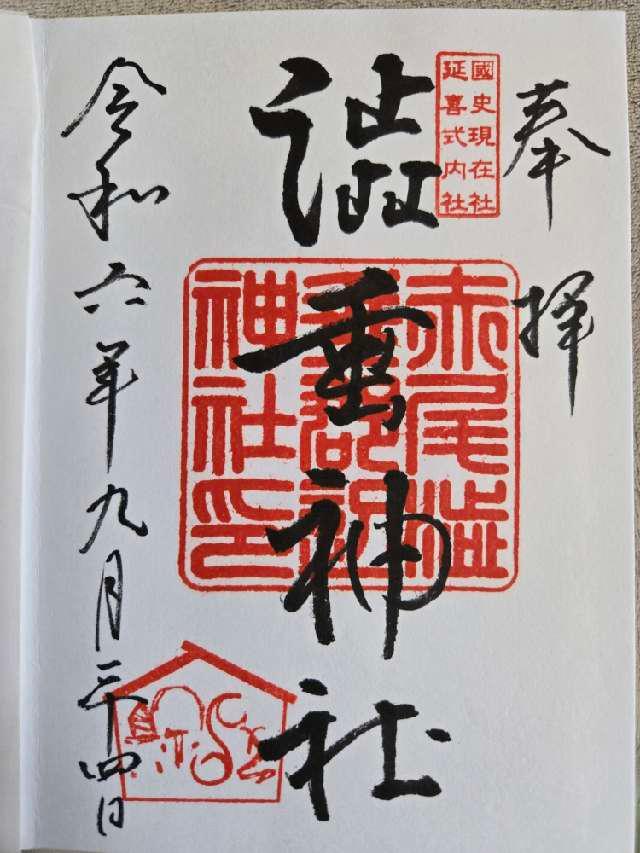 奉拝
國史現在社
延喜式内社
澁垂神社
赤尾澁
垂郡
神社印
令和六年九月二十四日